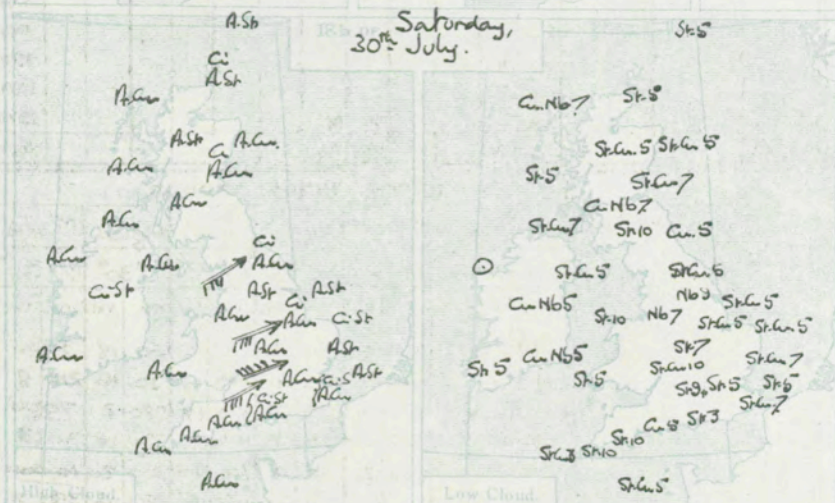 Saturday,
30th July.
A.St
Ci
A.St
A.Cu
A.St A.Cu.
Ci
A.Cu
A.Cu
A.Cu
A.Cu
Ci
A.Cu
A.Cu
A.Cu
Ci-St
A.St
A.St
Ci
A.Cu
A.Cu
Ci-St
A.Cu
A.Cu
A.St
A.Cu
A.St
A.Cu
Ci-St
A.Cu
A.Cu
A.Cu
A.Cu
A.Cu
A.Cu
High Cloud.
St-5
Cu.Nb7
St-5
St.Cu.5 St.Cu5
St-5
St.Cu7
Cu Nb7
St.Cu7
St-10
Cu.5
St.Cu5
St.Cu.6
Cu Nb5
St-10
Nb7
St.Cu5
St.Cu5
St.Cu.5
St-5
Cu Nb5
St-7
St.Cu7
St-5
St.Cu10
St-5
St-6
St.Cu7
Cu8
St-3
St-10
St-10
St.Cu.5
Low Cloud.